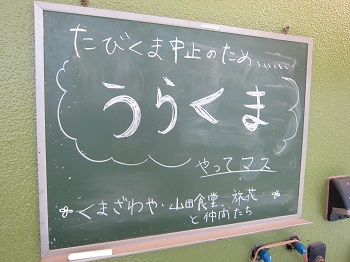 たびくま中止のため、、、、、、
うらくま
やってマス
くまざわや・山田食堂、旅花
と仲間たち